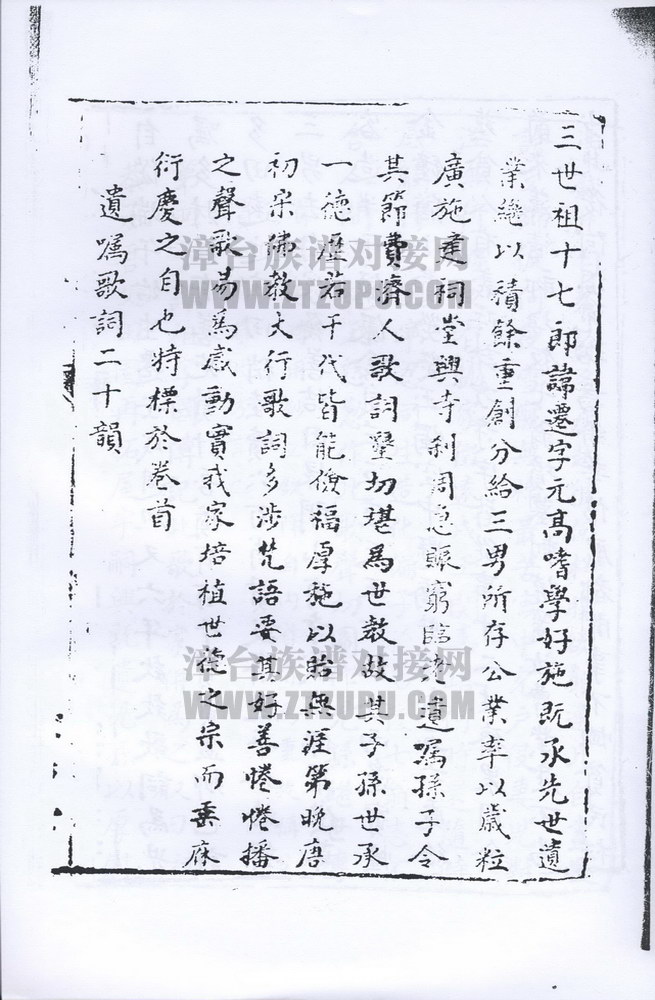 三世祖十七郎諱遷字元高嗜學好施既承先世遺
業繼以積餘重創分給三男所存公業率以歲粒
廣施建祠堂興寺刹周急賑窮臨 遺嘱孫子令
其節費濟人歌詞墾切堪為世教故其子孫世承
一德歷若干代皆能儉福厚施以貽無涯第晚唐
初宋佛教大行歌詞多涉梵語要其好善惓惓播
之聲歌易為感動實我家培植世 之宗而垂庥
衍慶之自也特標於卷首
遺嘱歌詞二十韻
漳台族谱对接网
WWW.ZTZUPU.COM
漳台族谱对接网
WWW.ZTZUPU.COM